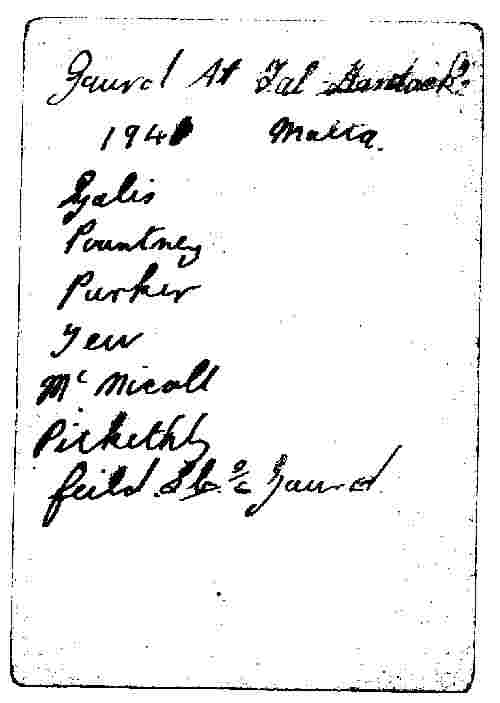 Gaurd At Tal-Handack.
1941 Malta.
Galis
Pountney
Parker
Tew
Mc Nicoll
Pickethly
feild. Gaurd.